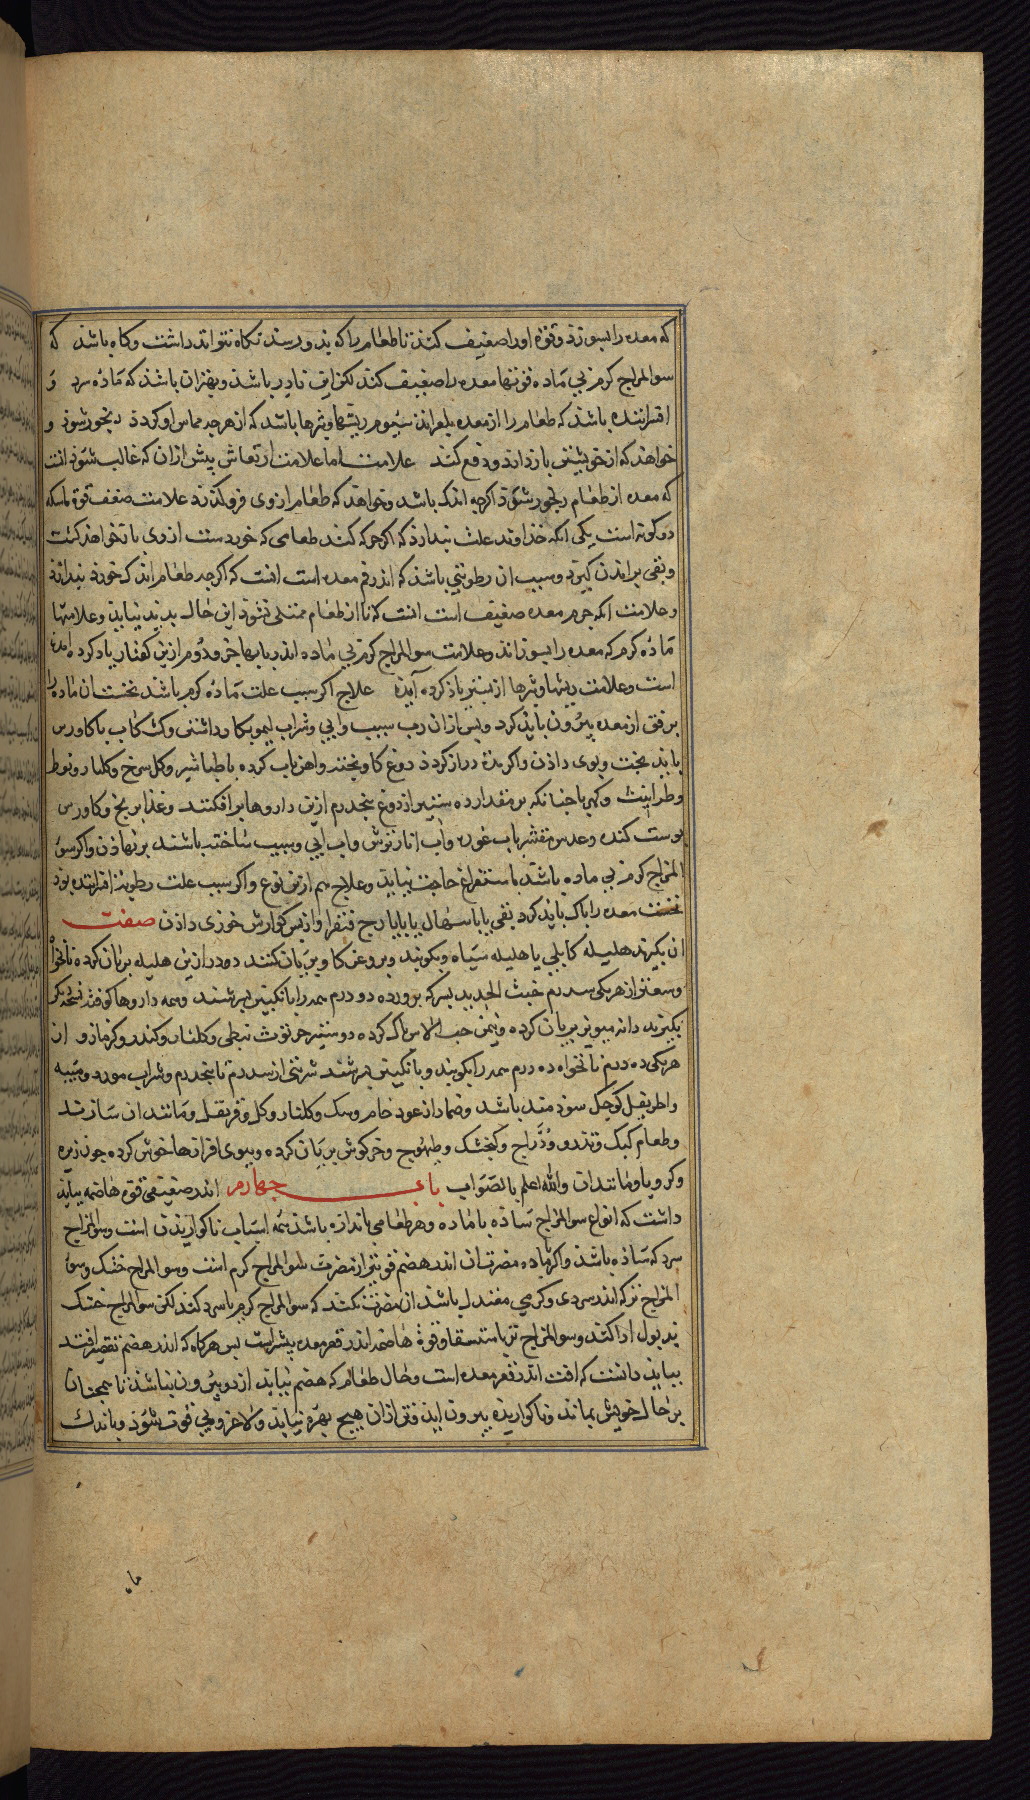 که معده را بسوزد و قوه او را ضعیف کند تا طعام را که بدو رسد نکاه نتواند داشت و کاه باشد که
سوالمزاج کرم بی ماده قوتها معده را ضعیف کند لکن این نادر باشد و بهتران باشد که ماده سرد و
لغزاننده باشد که طعام را از معده بلغزاند سیوم ریشها و بثرها باشد که از هرچه مماس او کردد رنجور شود و
خواهد که از خویشتن باز دارد و دفع کند علامت اما علامت ارتعاش پیش از ان که غالب شود انست
که معده از طعام رنجور شود اکرچه اندک باشد و خواهد که طعام از وی فرو کذرد علامت ضعف قوة ماسکه
دو کونه است یکی انکه خداوند علت پندارد که اکر حرکه کند طعامی که خورد ست از وی باز خواهد کشت
و بقی بر اندن کیرد و سبب ان رطوبتی باشد که اندر فم معده است انست که اکرچه طعام اندک خورد پندارد
و علامت انکه جرم معده ضعیف است انست که تا از طعام ممتلی نشود این حال پدید نیاید و علامتها
ماده کرم که معده را بسوزاند و علامت سوالمزاج کرم بی ماده اندر بابها جزو دوم ازین کفتار یاد کرده امده
است و علامت ریشها و بثرها از پس یاد کرده آید علاج اکر سبب علت ماده کرم باشد نخست ان ماده را
برفق از معده بیرون باید کرد و پس از ان رب سیب و ابی و شراب لیمو بکار داشتن و کشکاب با کاورس
باید پخت و بوی دادن و اکر مدة دراز کردد دوغ کاو پخته و اهن تاب کرده با طباشیر و کل سرخ و کلنار و قرط
و طراثیث و کهربا چنانکه بر مقدار ده ستیر از دوغ پنجدرم ازین داروها بر افکنند و غذا برنج و کاورس
پوست کنده و عدس مقشر باب غوره و اب انار ترش و اب ابی و سیب ساخته باشند بر نهادن و اکر سو
المزاج کرم بی ماده باشد باستفراغ حاجت نیاید و علاج هم ازین نوع و اکر سبب علت رطوبة لغزاننده بود
نخست معده را پاک باید کرد بقی یا باسهال یا بایارج فیقرا و از پس کوارش خوزی دادن صفت
ان بکیرند هلیله کابلی یا هلیله سیاه و بکوبند و بروغن کاو بریان کنند دو درم ازین هلیله بریان کرده نانخواه
و سعتر از هر یکی سه درم خبث الحدید بسرکه پرورده دو درم همه را بانکبین بسرشند و همه داروها کوفته نسخة دیکر
بکیرند دانه مویز بریان کرده و نیم من حب الالاس پاک کرده دو ستیر خرنوب نبطی و کلنار و کندر و کزمازو از
هر یکی ده درم نانخواه ده درم همه را بکوبند و بانکبین بسرشند شربتی از سه درم تا پنجدرم و شراب مورد و میبه
و اطریفل کوچک سودمند باشد و ضماد از عود خام و سک و کلنار و کل و قرنفل و مانند ان سازند
و طعام کبک و تذرو و دراج و کنجشک و طیهوج و خرکوش بریان کرده و ببوی افزارها خوش کرده چون زیره
و کرویا و مانند ان والله اعلم بالصواب باب چهارم اندر ضعیفی قوة هاضمه بباید
داشت که انواع سوالمزاج ساده با ماده و هر طعامی باندازه باشد همه اسباب ناکواریدن است و سوالمزاج
سرد که ساده باشد و اکر با ماده مضرت ان اندر هضم قوی تر از مضرت سوالمزاج کرم است و سوالمزاج خشک و سو
المزاج تر که اندر سردی و کرمی معتدل باشد ان مضرت نکند که سوالمزاج کرم یا سرد کند لکن سوالمزاج خشک
بذبول ادا کند و سوالمزاج تر باستسقا و قوة هاضمه اندر قعر معده بیشتر است پس هرکاه که اندر هضم تقصیر افتد
بباید دانست که افت اندر قعر معده است و حال طعام که هضم نیابد از دو بیرون نباشد یا همچنان
بر حال خویش بماند و ناکواریده بیرون اید و تن از ان هیچ بهره نیابد و لاغر و بی قوت شود و باندک